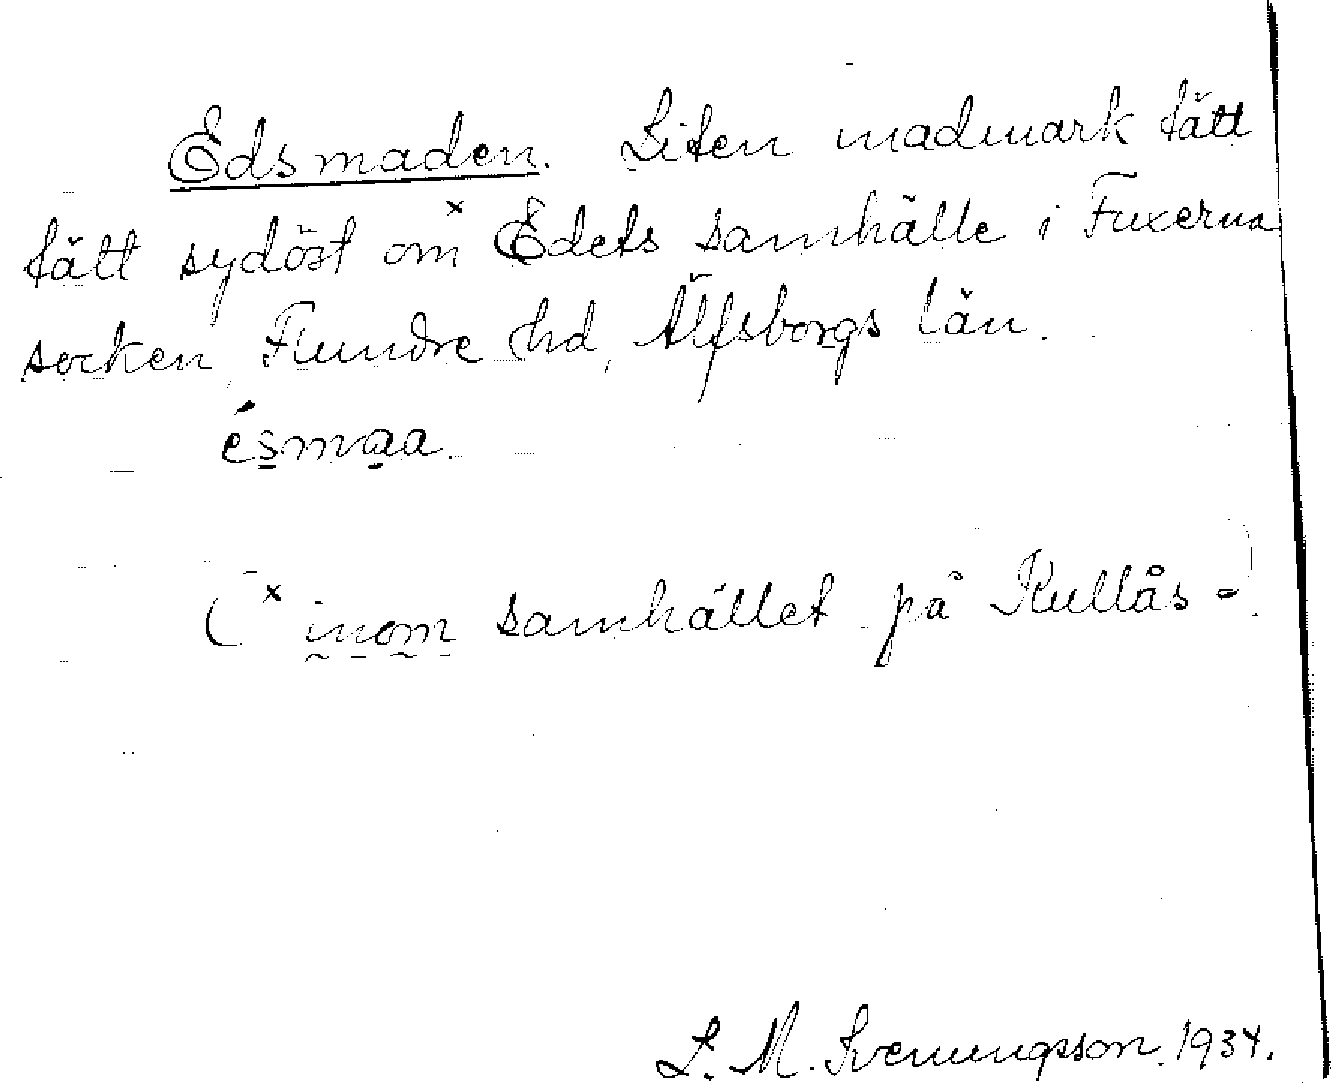 Edsmaden. Liten madmark tätt
tätt sydöst om x Edets samhälle i Fuxerna
socken, Flundre hd, Älfsborgs län.
ésmaa.
(x inom samhället på Kullås-)
L. M. Svenungsson. 1934.